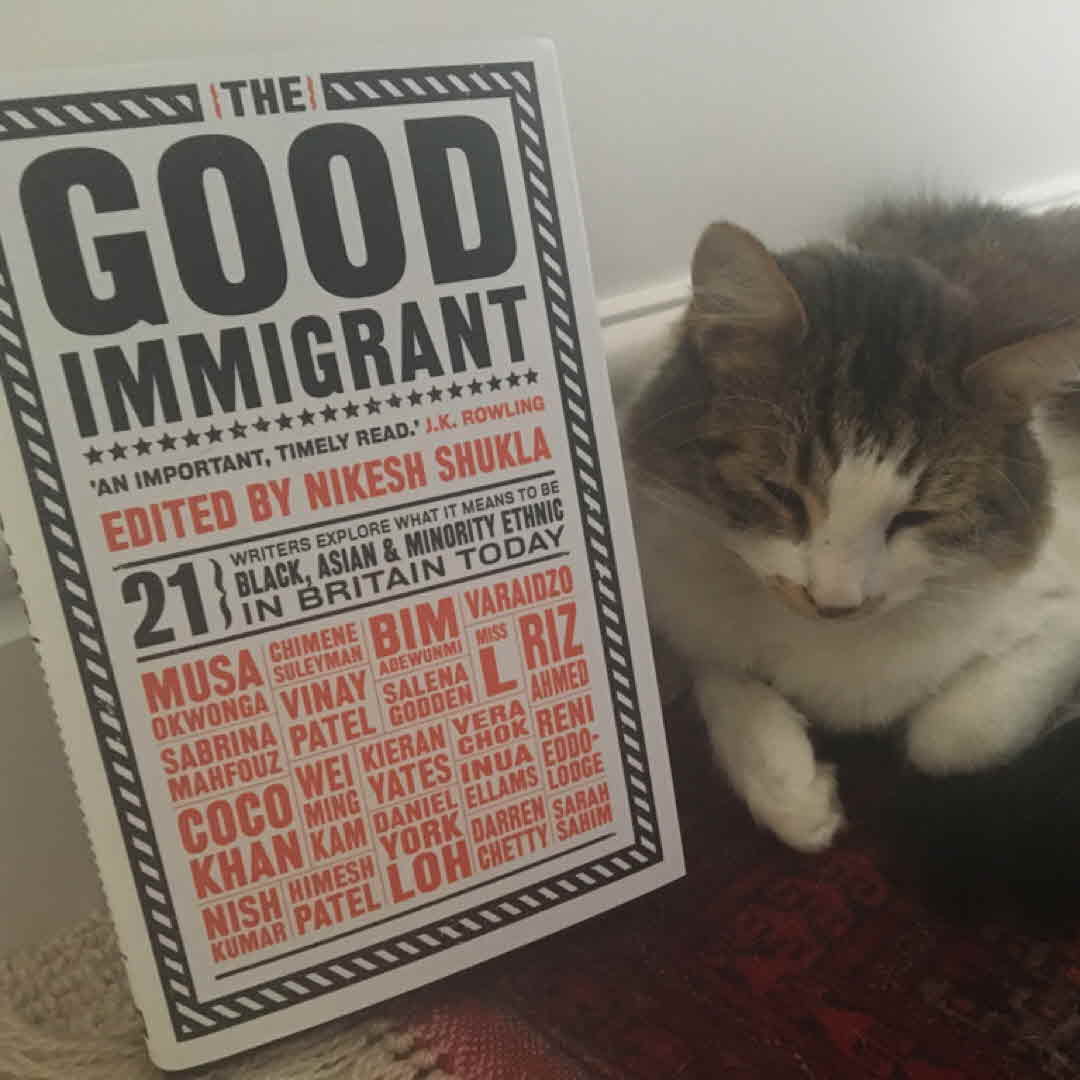 {THE}
GOOD
IMMIGRANT
'AN IMPORTANT, TIMELY READ.' J.K. ROWLING
EDITED BY NIKESH SHUKLA
21 }
WRITERS EXPLORE WHAT IT MEANS TO BE
BLACK, ASIAN & MINORITY ETHNIC
IN BRITAIN TODAY
MUSA
OKWONGA
CHIMENE
SULEYMAN
BIM
ADEWUNMI
VARAIDZO
VINAY
PATEL
SALENA
GODDEN
MISS
L
RIZ
AHMED
SABRINA
MAHFOUZ
WEI
MING
KAM
KIERAN
YATES
VERA
CHOK
RENI
EDDO-
LODGE
COCO
KHAN
DANIEL
YORK
LOH
INUA
ELLAMS
NISH
KUMAR
HIMESH
PATEL
DARREN
CHETTY
SARAH
SAHIM